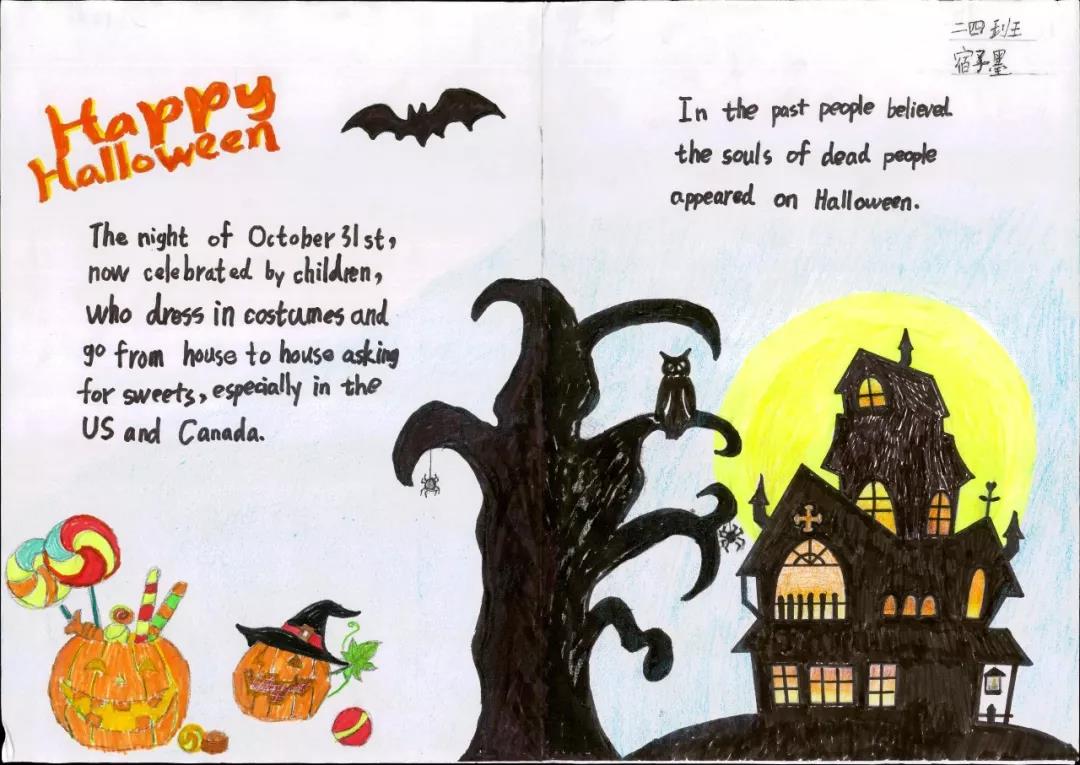 Happy
Halloween
The night of October 31st,
now celebrated by children,
who dress in costumes and
go from house to house asking
for sweets, especially in the
US and Canada.
二四班
宿子墨
In the past people believed
the souls of dead people
appeared on Halloween.